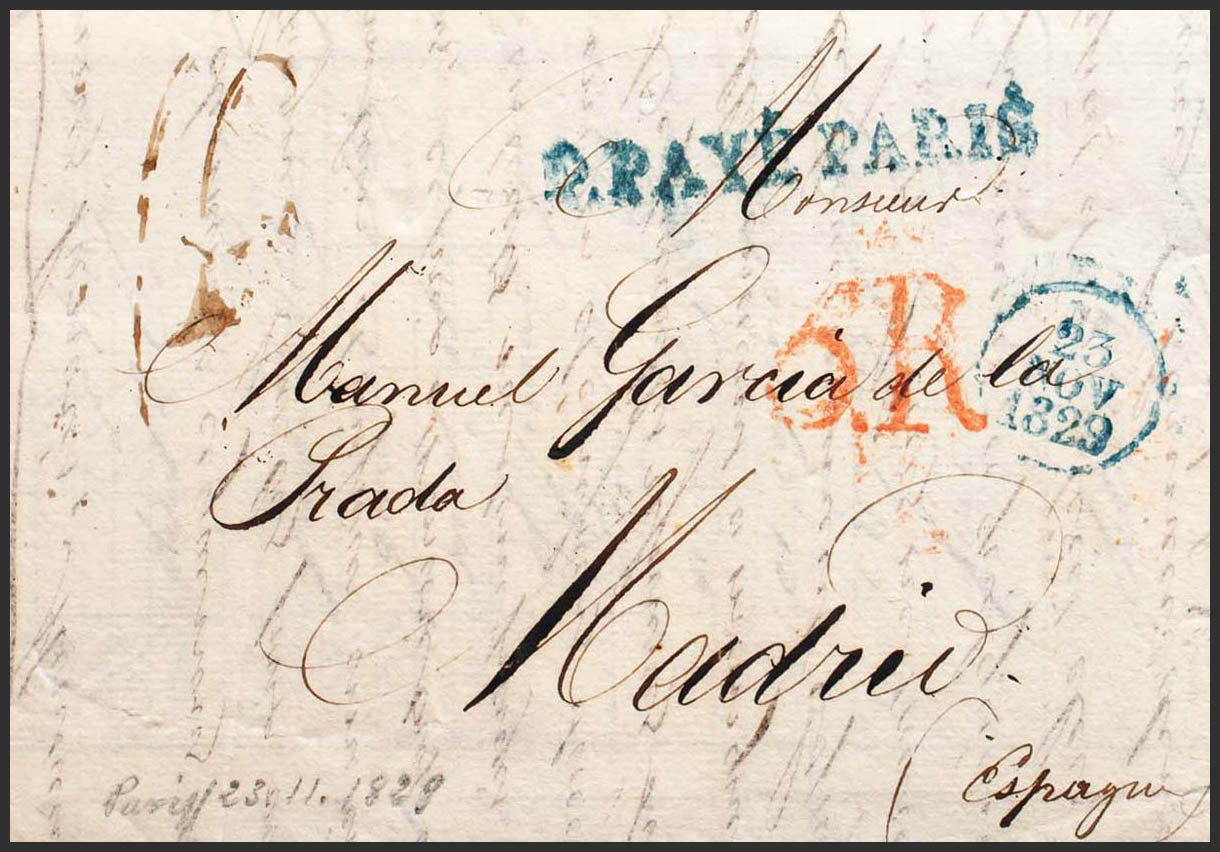 P.PAYÉ PARIS
Monsieur
Manuel Garcia de la
Prada
6.R
23
NOV
1829
Madrid.
(Espagne
Paris 23.11.1829